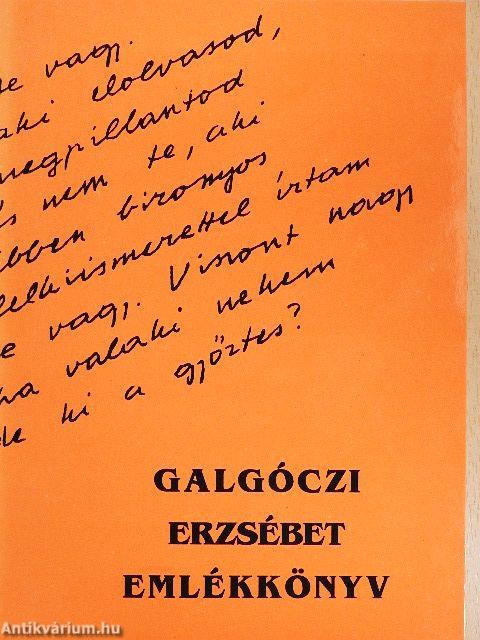 te vagy.
aki elolvasod,
megpillantod
és nem te, aki
ebben bizonyos
lelkiismerettel írtam
te vagy. Viszont nagy
ha valaki nekem
ki a győztes?
GALGÓCZI
ERZSÉBET
EMLÉKKÖNYV
Antikvárium.hu